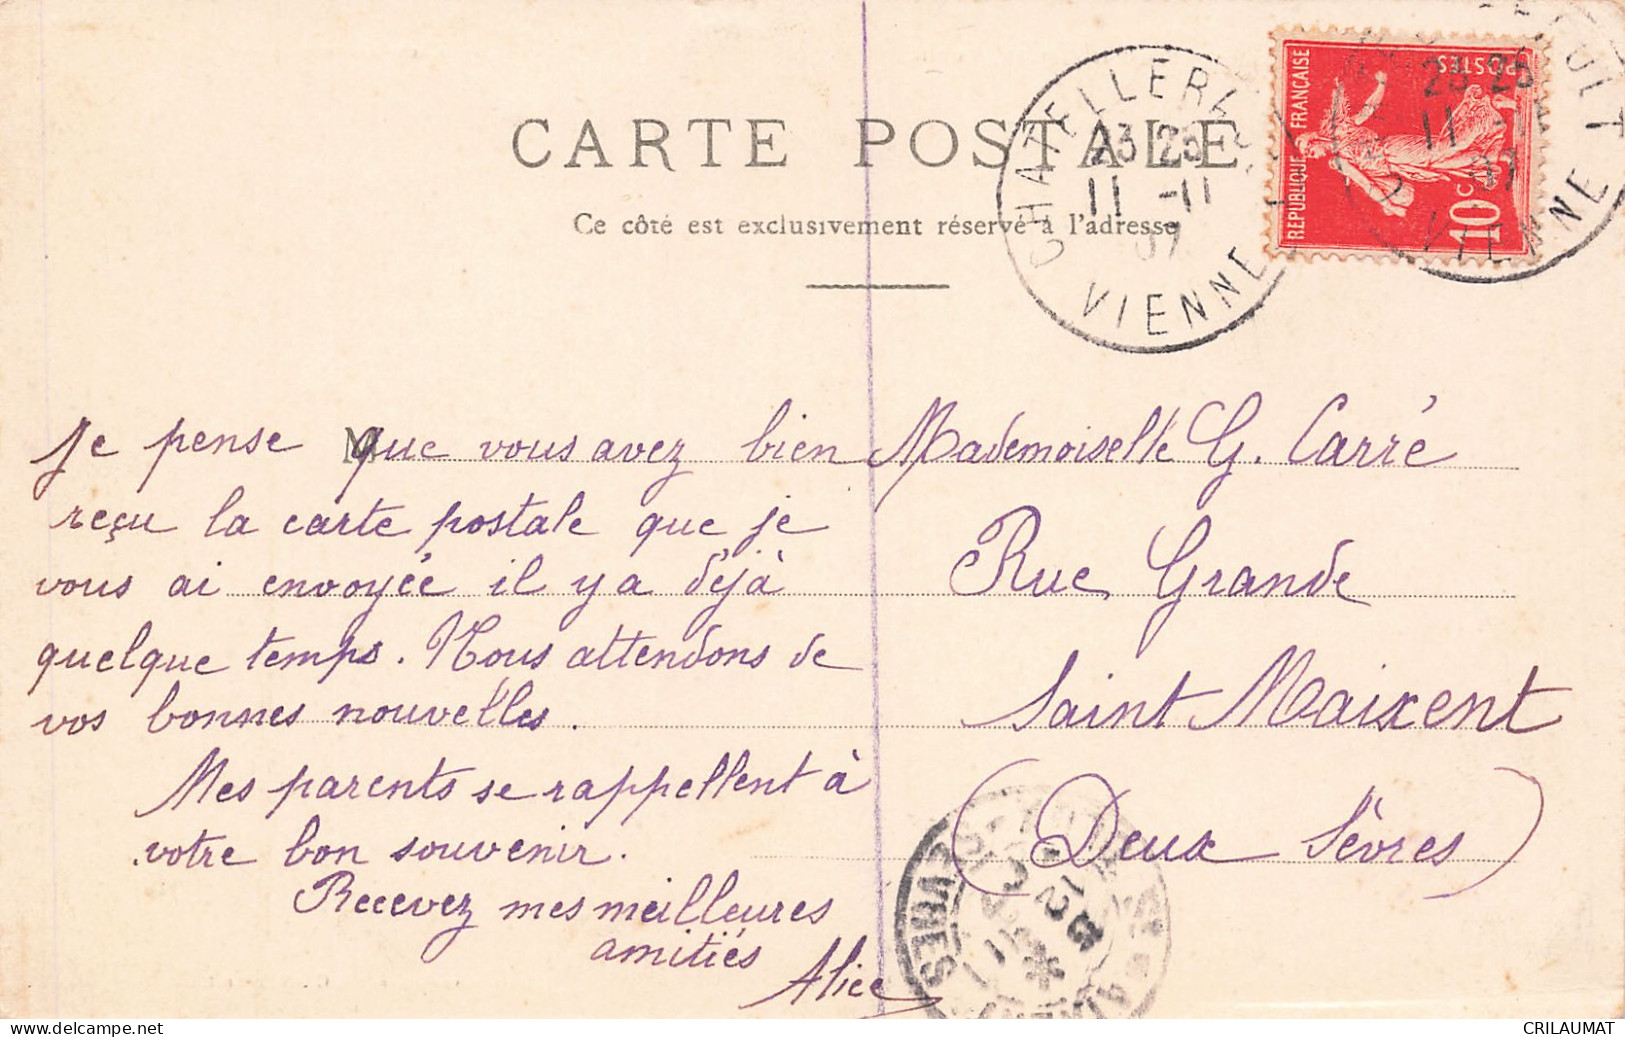 CARTE POSTALE
Ce côté est exclusivement réservé à l'adresse
CHATELLERAULT
23 25
11 -11
07
VIENNE
REPUBLIQUE FRANÇAISE
POSTES
10 C
23 25
11 -11
07
VIENNE
M
Je pense que vous avez bien
reçu la carte postale que je
vous ai envoyée il y a déjà
quelque temps. Nous attendons de
vos bonnes nouvelles.
Mes parents se rappellent à
votre bon souvenir.
Recevez mes meilleures
amitiés
Alice
Mademoiselle G. Carré
Rue Grande
Saint Maixent
(Deux Sèvres)
CRILAUMAT